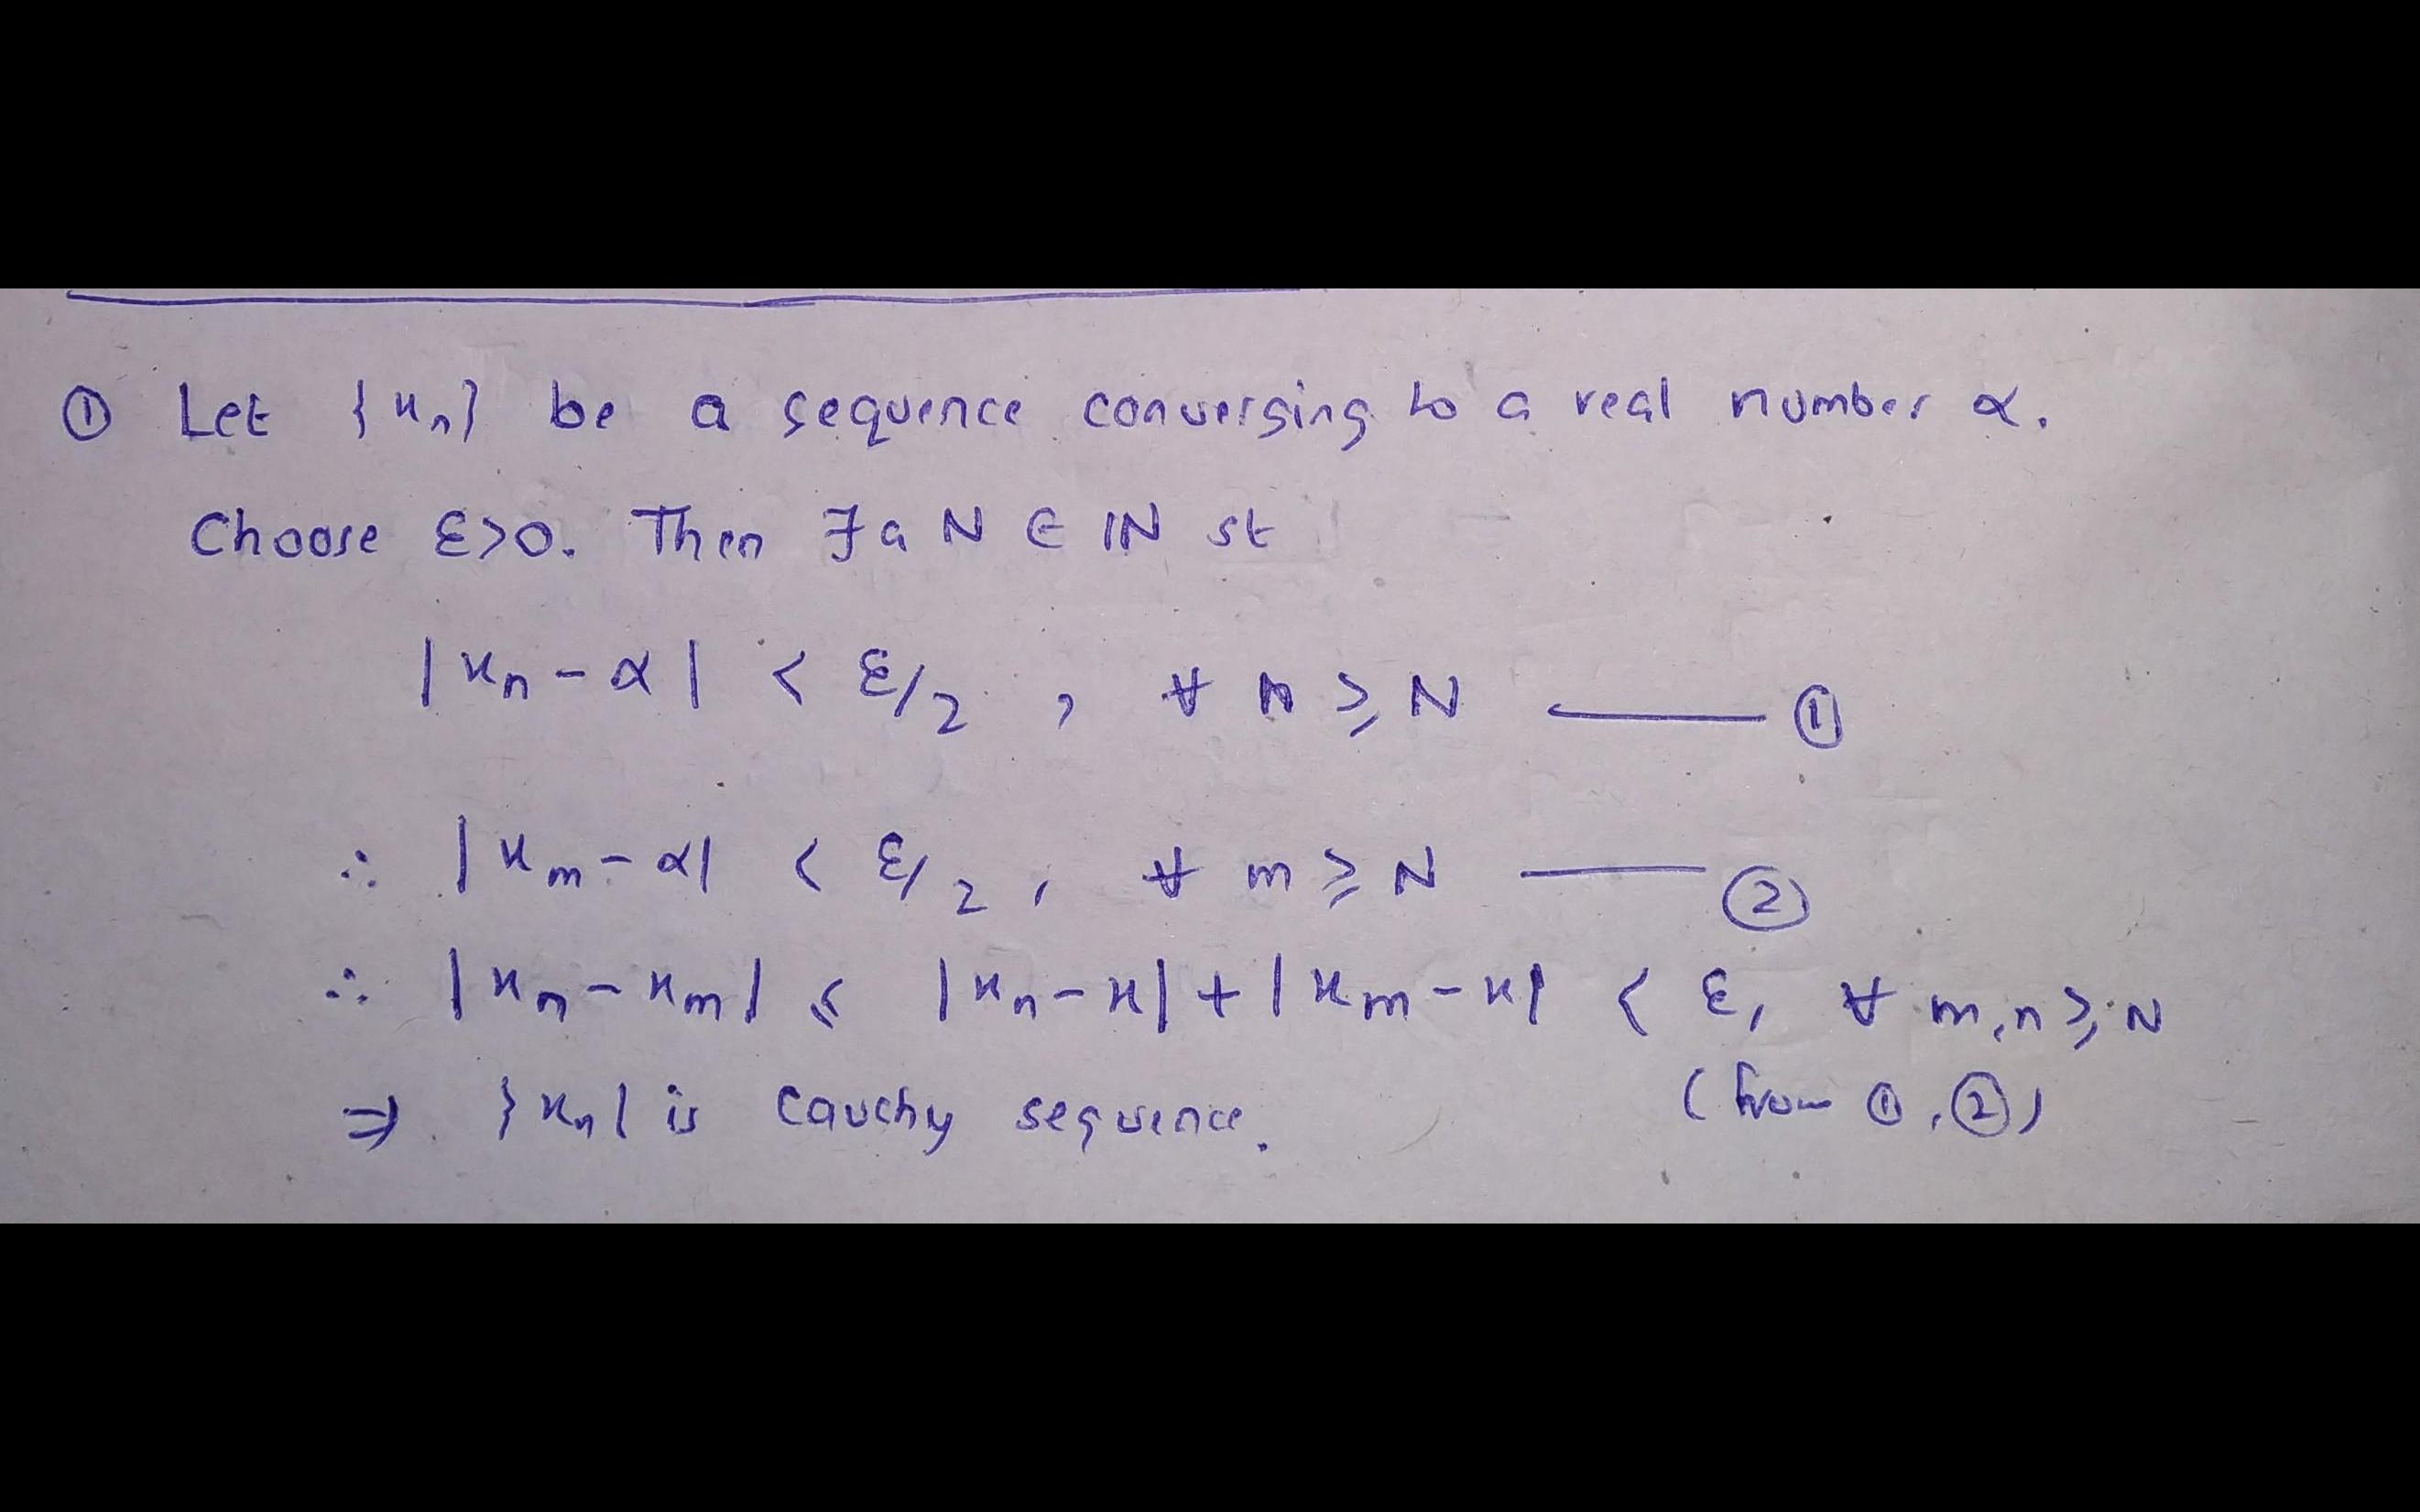 ① Let {xₙ} be a sequence converging to a real number α.
Choose ε>0. Then ∃ a N ∈ ℕ st
|xₙ - α| < ε/2 , ∀ n ≥ N —— ①
∴ |xₘ - α| < ε/2 , ∀ m ≥ N —— ②
∴ |xₙ - xₘ| ≤ |xₙ - x| + |xₘ - x| < ε, ∀ m,n ≥ N
(from ①, ②)
⇒ {xₙ} is Cauchy sequence.